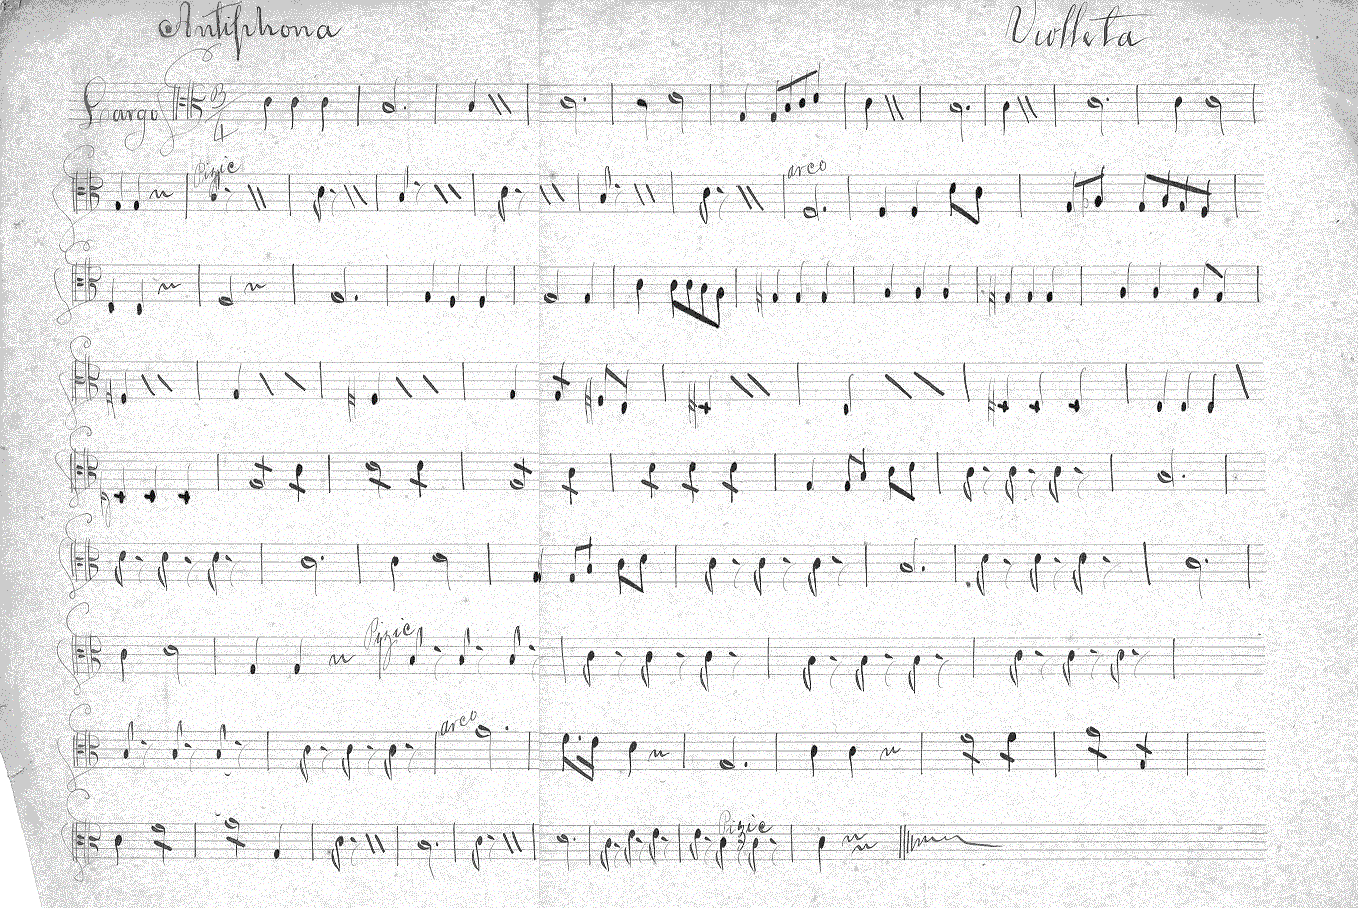 Antiphona Violleta
Largo 3/4
Pizic arco
Pizic
arco
Pizic